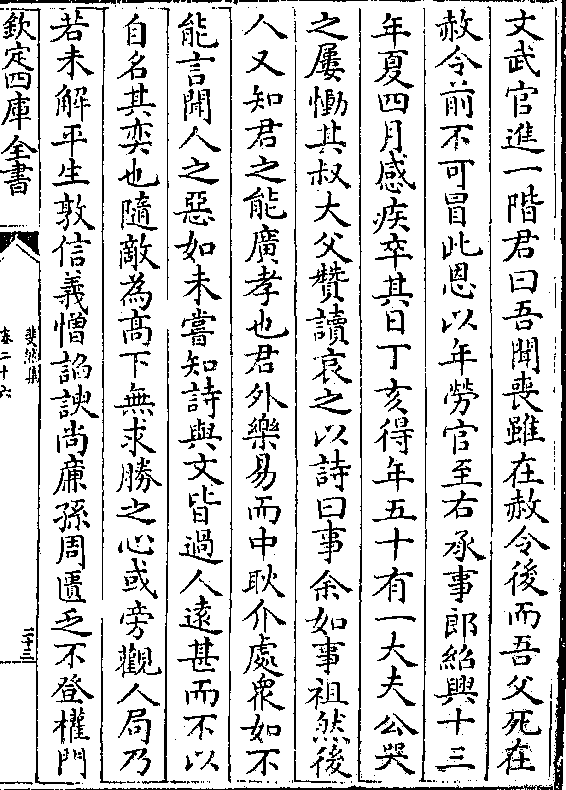 文武官進一階君曰吾聞喪雖在赦令後而吾父死在
赦令前不可冒此恩以年勞官至右承事郎紹興十三
年夏四月感疾卒其日丁亥得年五十有一大夫公哭
之屢慟其叔大父贊讀哀之以詩曰事余如事祖然後
人又知君之能廣孝也君外樂易而中耿介處衆如不
能言聞人之惡如未嘗知詩與文皆過人遠甚而不以
自名其奕也隨敵為高下無求勝之心或旁觀人局乃
若未解平生敦信義憎諂諛尚廉孫周匱乏不登權門
欽定四庫全書
斐然集
卷二十六
二十三